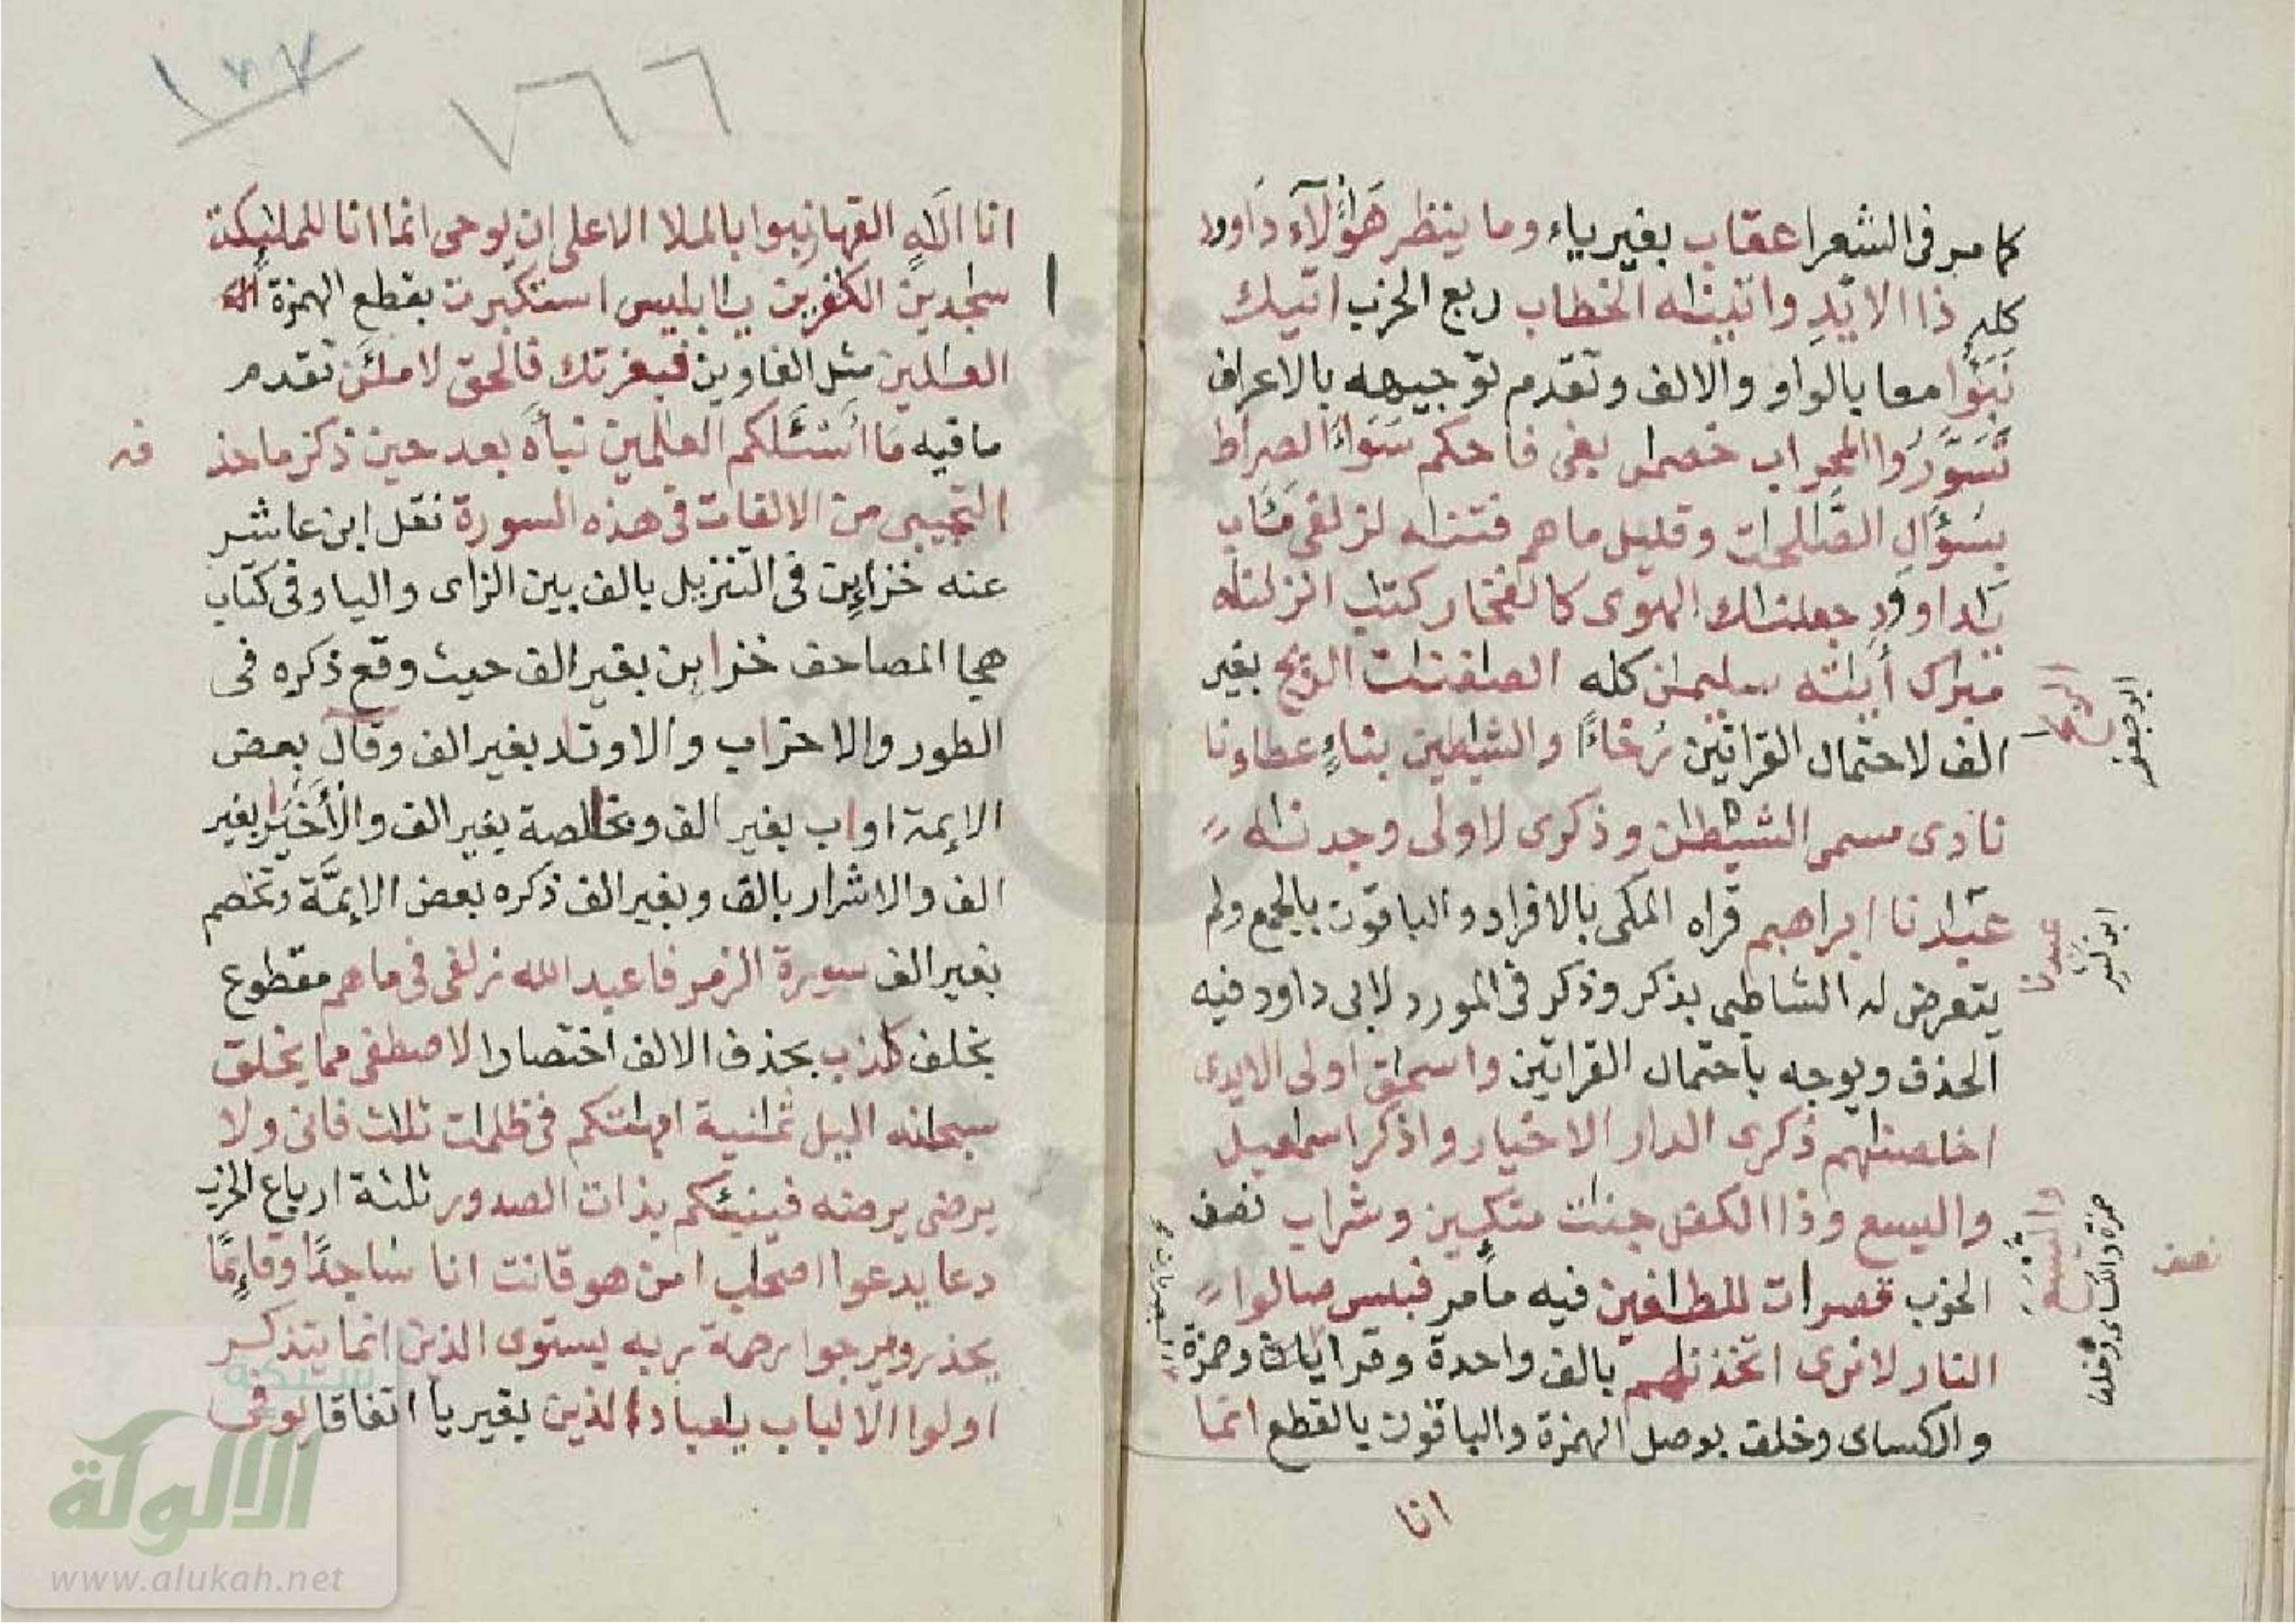 كما مر فى الشعرا عقاب بغير ياء وما ينظر هؤلآء داوود
كله ذا الايد واتينٰه الخطاب ربع الحزب اتيك
نبؤا معا بالواو والالف وتقدم توجيهه بالاعراف
تسوروا المحراب خصمٰن بغى فاحكم سوآء الصراط
بسؤال الصّٰلحٰت وقليل ما هم فتنٰه لزلفى مئاب
يٰداوود جعلنٰك الهوى كالفجار كتٰب انزلنٰه
مبٰرك أيٰته سليمٰن كله الصٰفنٰت الريٰح بغير
الف لاحتمال القراتين رخاءً والشيٰطين بناءٍ عطاونا
نادى مسمى الشيطٰن وذكرى لاولى وجدنٰه
عبٰدنا ابراهيم قراه المكى بالافراد والباقون بالجمع ولم
يتعرض له الشاطبى بذكر وذكر فى المورد لابى داود فيه
الحذف ويوجه باحتمال القراتين واسحٰق اولى الايدى
اخلصنٰهم ذكرى الدار الاخيار واذكر اسمٰعيل
واليسع وذا الكفل جنٰت متكيين وشراب نصف
الحزب قصرات للطٰغين فيه ما مر فبيس صالوا
النار لا نرى اتخذنٰهم بالف واحدة وقرا وحمزة
والكساى وخلف بوصل الهمزة والباقون بالقطع انما
انا
الريٰح
ابو جعفر
عبدنا
ابن كثير
واليسع
حمزة والكساى وخلف
نصف
انا الٰه القهار نبؤا بالملا الاعلى ان يوحى انما انا للملٰيكة
سٰجدين الكٰفرين يٰابليس استكبرت بقطع الهمزة
العٰلين مثل الغاوين فبعزتك فالحق لاملئن تقدم
ما فيه ما أسئلكم العٰلمين نبأه بعد حين ذكر ما حذ
فه
التجيبى من الالفات فى هذه السورة نقل ابن عاشر
عنه خزاين فى التنزيل بالف بين الزاى واليا وفى كتاب
هجا المصاحف خزاين بغير الف حيث وقع ذكره فى
الطور والاحزاب والاوتاد بغير الف وقال بعض
الايمة اواب بغير الف وبخالصة بغير الف والأخير بغير
الف والاشرار بالف وبغير الف ذكره بعض الايمَّة وتخصم
بغير الف سورة الزمر فاعبد الله زلفى فى ما هم مقطوع
بخلف كٰذب بحذف الالف اختصارا لاصطفى مما يخلق
سبحانه اليل ثمٰنية امهٰتكم فى ظلمات ثلٰث فانى ولا
يرضى يرضه فينبئكم بذات الصدور ثلثة ارباع الحزب
دعا يدعوا اصحٰب امن هو قانت انا ساجدًا وقايمًا
يحذر ويرجوا رحمة ربه يستوى الذين انما يتذكر
اولوا الالباب يٰعباد الذين بغير يا اتفاقا يوفى
٧٦٦
شبكة
الألوكة
www.alukah.net